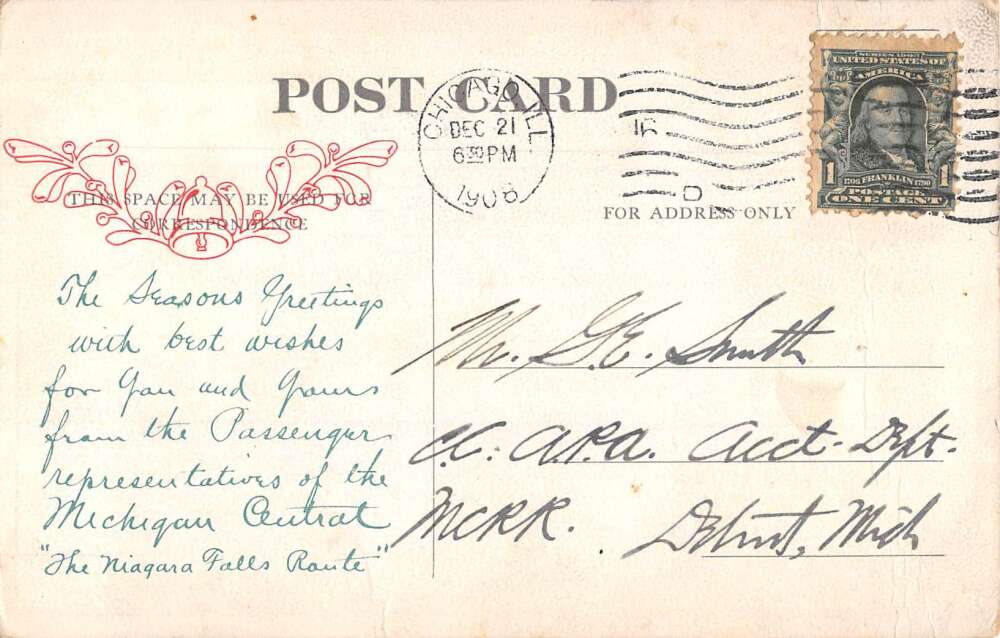 POST CARD
CHICAGO, ILL.
DEC 21
630 PM
1908
SERIES 1902
UNITED STATES OF
AMERICA
1 1706 FRANKLIN 1790 1
POSTAGE
ONE CENT
THIS SPACE MAY BE USED FOR
CORRESPONDENCE
FOR ADDRESS ONLY
The Seasons Greetings
with best wishes
for You and Yours
from the Passenger
representatives of the
Michigan Central
"The Niagara Falls Route"
Mr. G.E. Smith
A.P.A. Acct. Dept.
MCRR.
Detroit, Mich